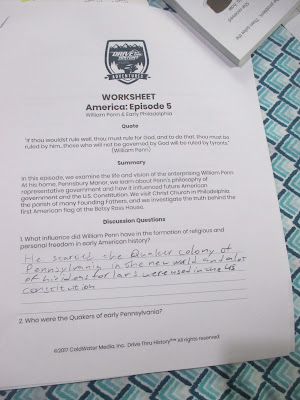 DRIVE THRU
HISTORY
ADVENTURES
WORKSHEET
America: Episode 5
William Penn & Early Philadelphia
Quote
"If thou wouldst rule well, thou must rule for God, and to do that, thou must be
ruled by him...those who will not be governed by God will be ruled by tyrants."
(William Penn)
Summary
In this episode, we examine the life and vision of the enterprising William Penn.
At his home, Pennsbury Manor, we learn about Penn's philosophy of
representative government and how it influenced future American
government and the U.S. Constitution. We visit Christ Church in Philadelphia,
the parish of many Founding Fathers, and we investigate the truth behind the
first American flag at the Betsy Ross House.
Discussion Questions
1. What influence did William Penn have in the formation of religious and
personal freedom in early American history?
He started the Quaker colony of
Pennsylvania in the new wold and alot
of his ideas for laws were used in the US
constitution
2. Who were the Quakers of early Pennsylvania?
©2017 ColdWater Media, Inc. Drive Thru History™ All rights reserved